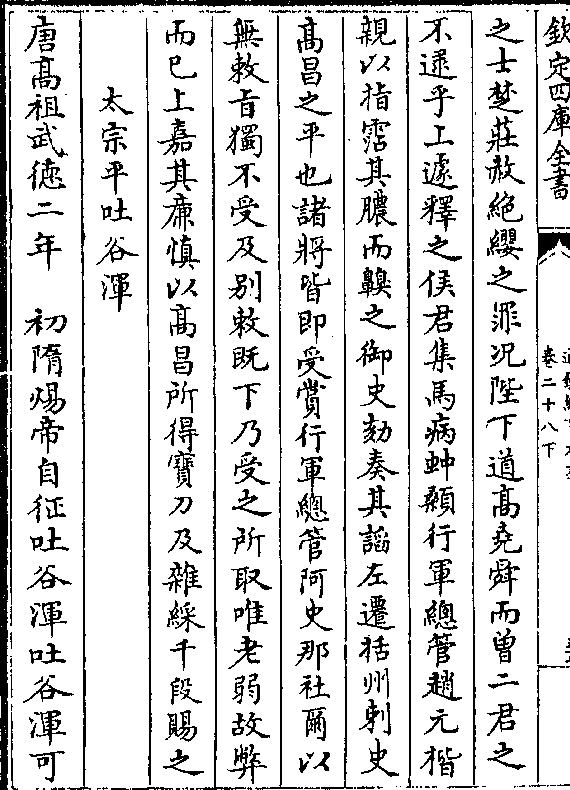 欽定四庫全書
卷二十八下
之士楚莊赦絕纓之罪况陛下道髙堯舜而曾二君之
不逮乎上遽釋之侯君集馬病蚛顙行軍總管趙元楷
親以指霑其膿而齅之御史劾奏其謟左遷括州刺史
髙昌之平也諸將皆即受賞行軍總管阿史那社爾以
無敕旨獨不受及别敕既下乃受之所取唯老弱故弊
而已上嘉其廉慎以髙昌所得寶刀及雜綵千段賜之
太宗平吐谷渾
唐髙祖武徳二年 初隋煬帝自征吐谷渾吐谷渾可